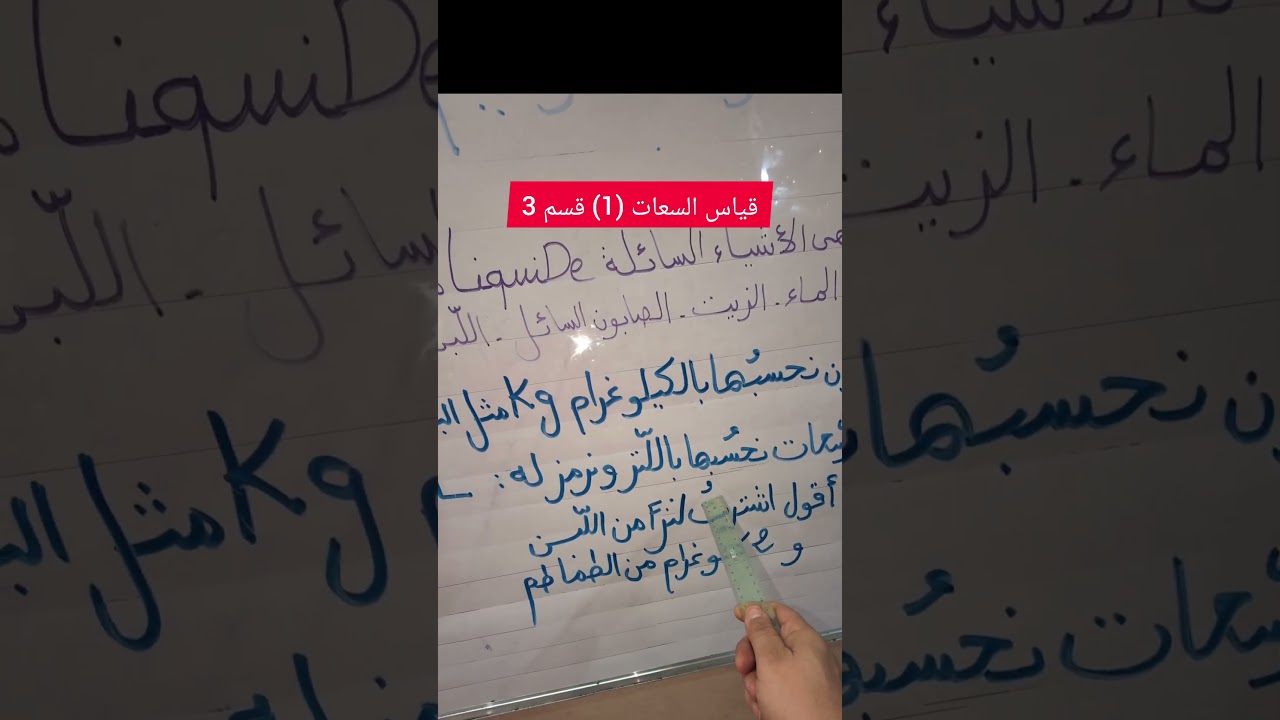 قياس السعات (1) قسم 3
الأشياء السائلة Liquide
الماء. الزيت. الصابون السائل. اللبن
نحسبُها بالكيلوغرام Kg مثل
نحسُبها باللّتر ونرمز له: L
أقول اشتريتُ لتراً من اللّبن
و كيلوغرام من الطماطم